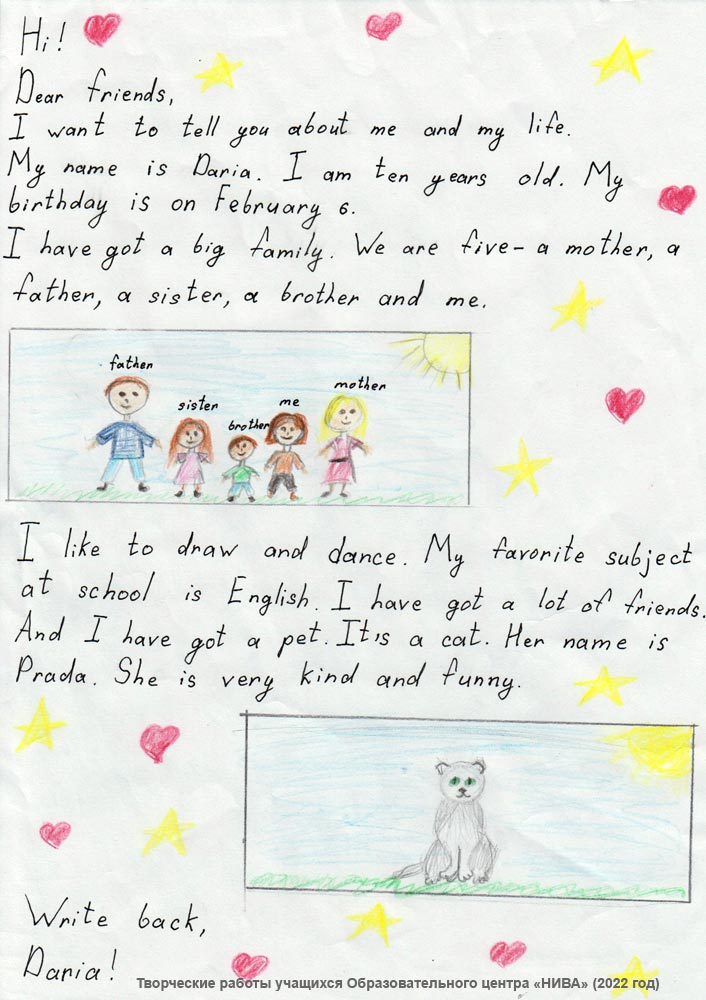 Hi!
Dear friends,
I want to tell you about me and my life.
My name is Daria. I am ten years old. My
birthday is on February 6.
I have got a big family. We are five- a mother, a
father, a sister, a brother and me.
father
sister
brother
me
mother
I like to draw and dance. My favorite subject
at school is English. I have got a lot of friends.
And I have got a pet. It,s a cat. Her name is
Prada. She is very kind and funny.
Write back,
Daria!
Творческие работы учащихся Образовательного центра «НИВА» (2022 год)